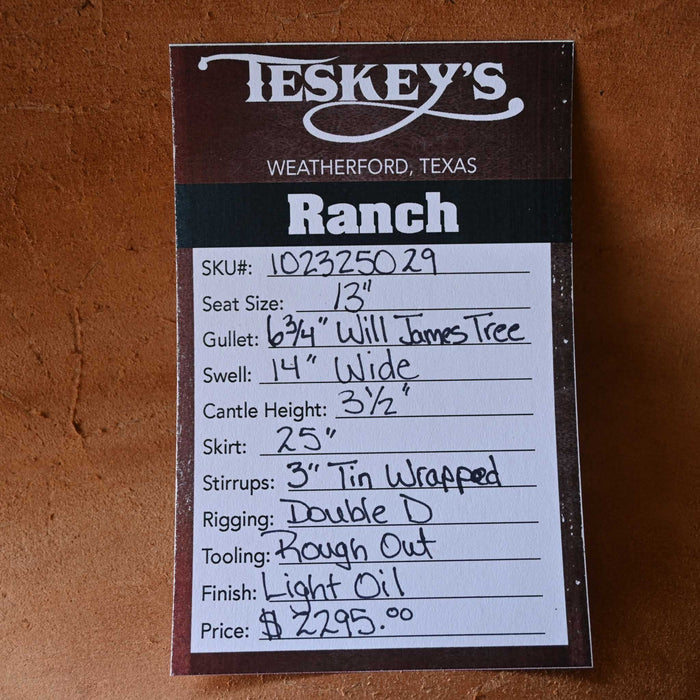 TESKEY'S
WEATHERFORD, TEXAS
Ranch
SKU#: 102325029
Seat Size: 13"
Gullet: 6 3/4" Will James Tree
Swell: 14" Wide
Cantle Height: 3 1/2"
Skirt: 25"
Stirrups: 3" Tin Wrapped
Rigging: Double D
Tooling: Rough Out
Finish: Light Oil
Price: $ 2295.00